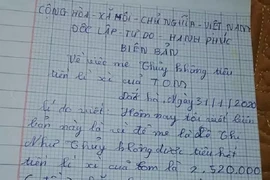 CỘNG HÒA - XÃ HỘI - CHỦ NGHĨA - VIỆT NAM
ĐỘC LẬP - TỰ DO - HẠNH PHÚC
BIÊN BẢN
Về việc mẹ Thúy không tiêu
tiền lì xì của TOM
ngày 31/1/2020
lí do viết: Hôm nay tôi viết biên
bản này là vì để mẹ là Đỗ Thị
Như Thúy không được tiêu hết
tiền lì xì của tôm là 2.320.000